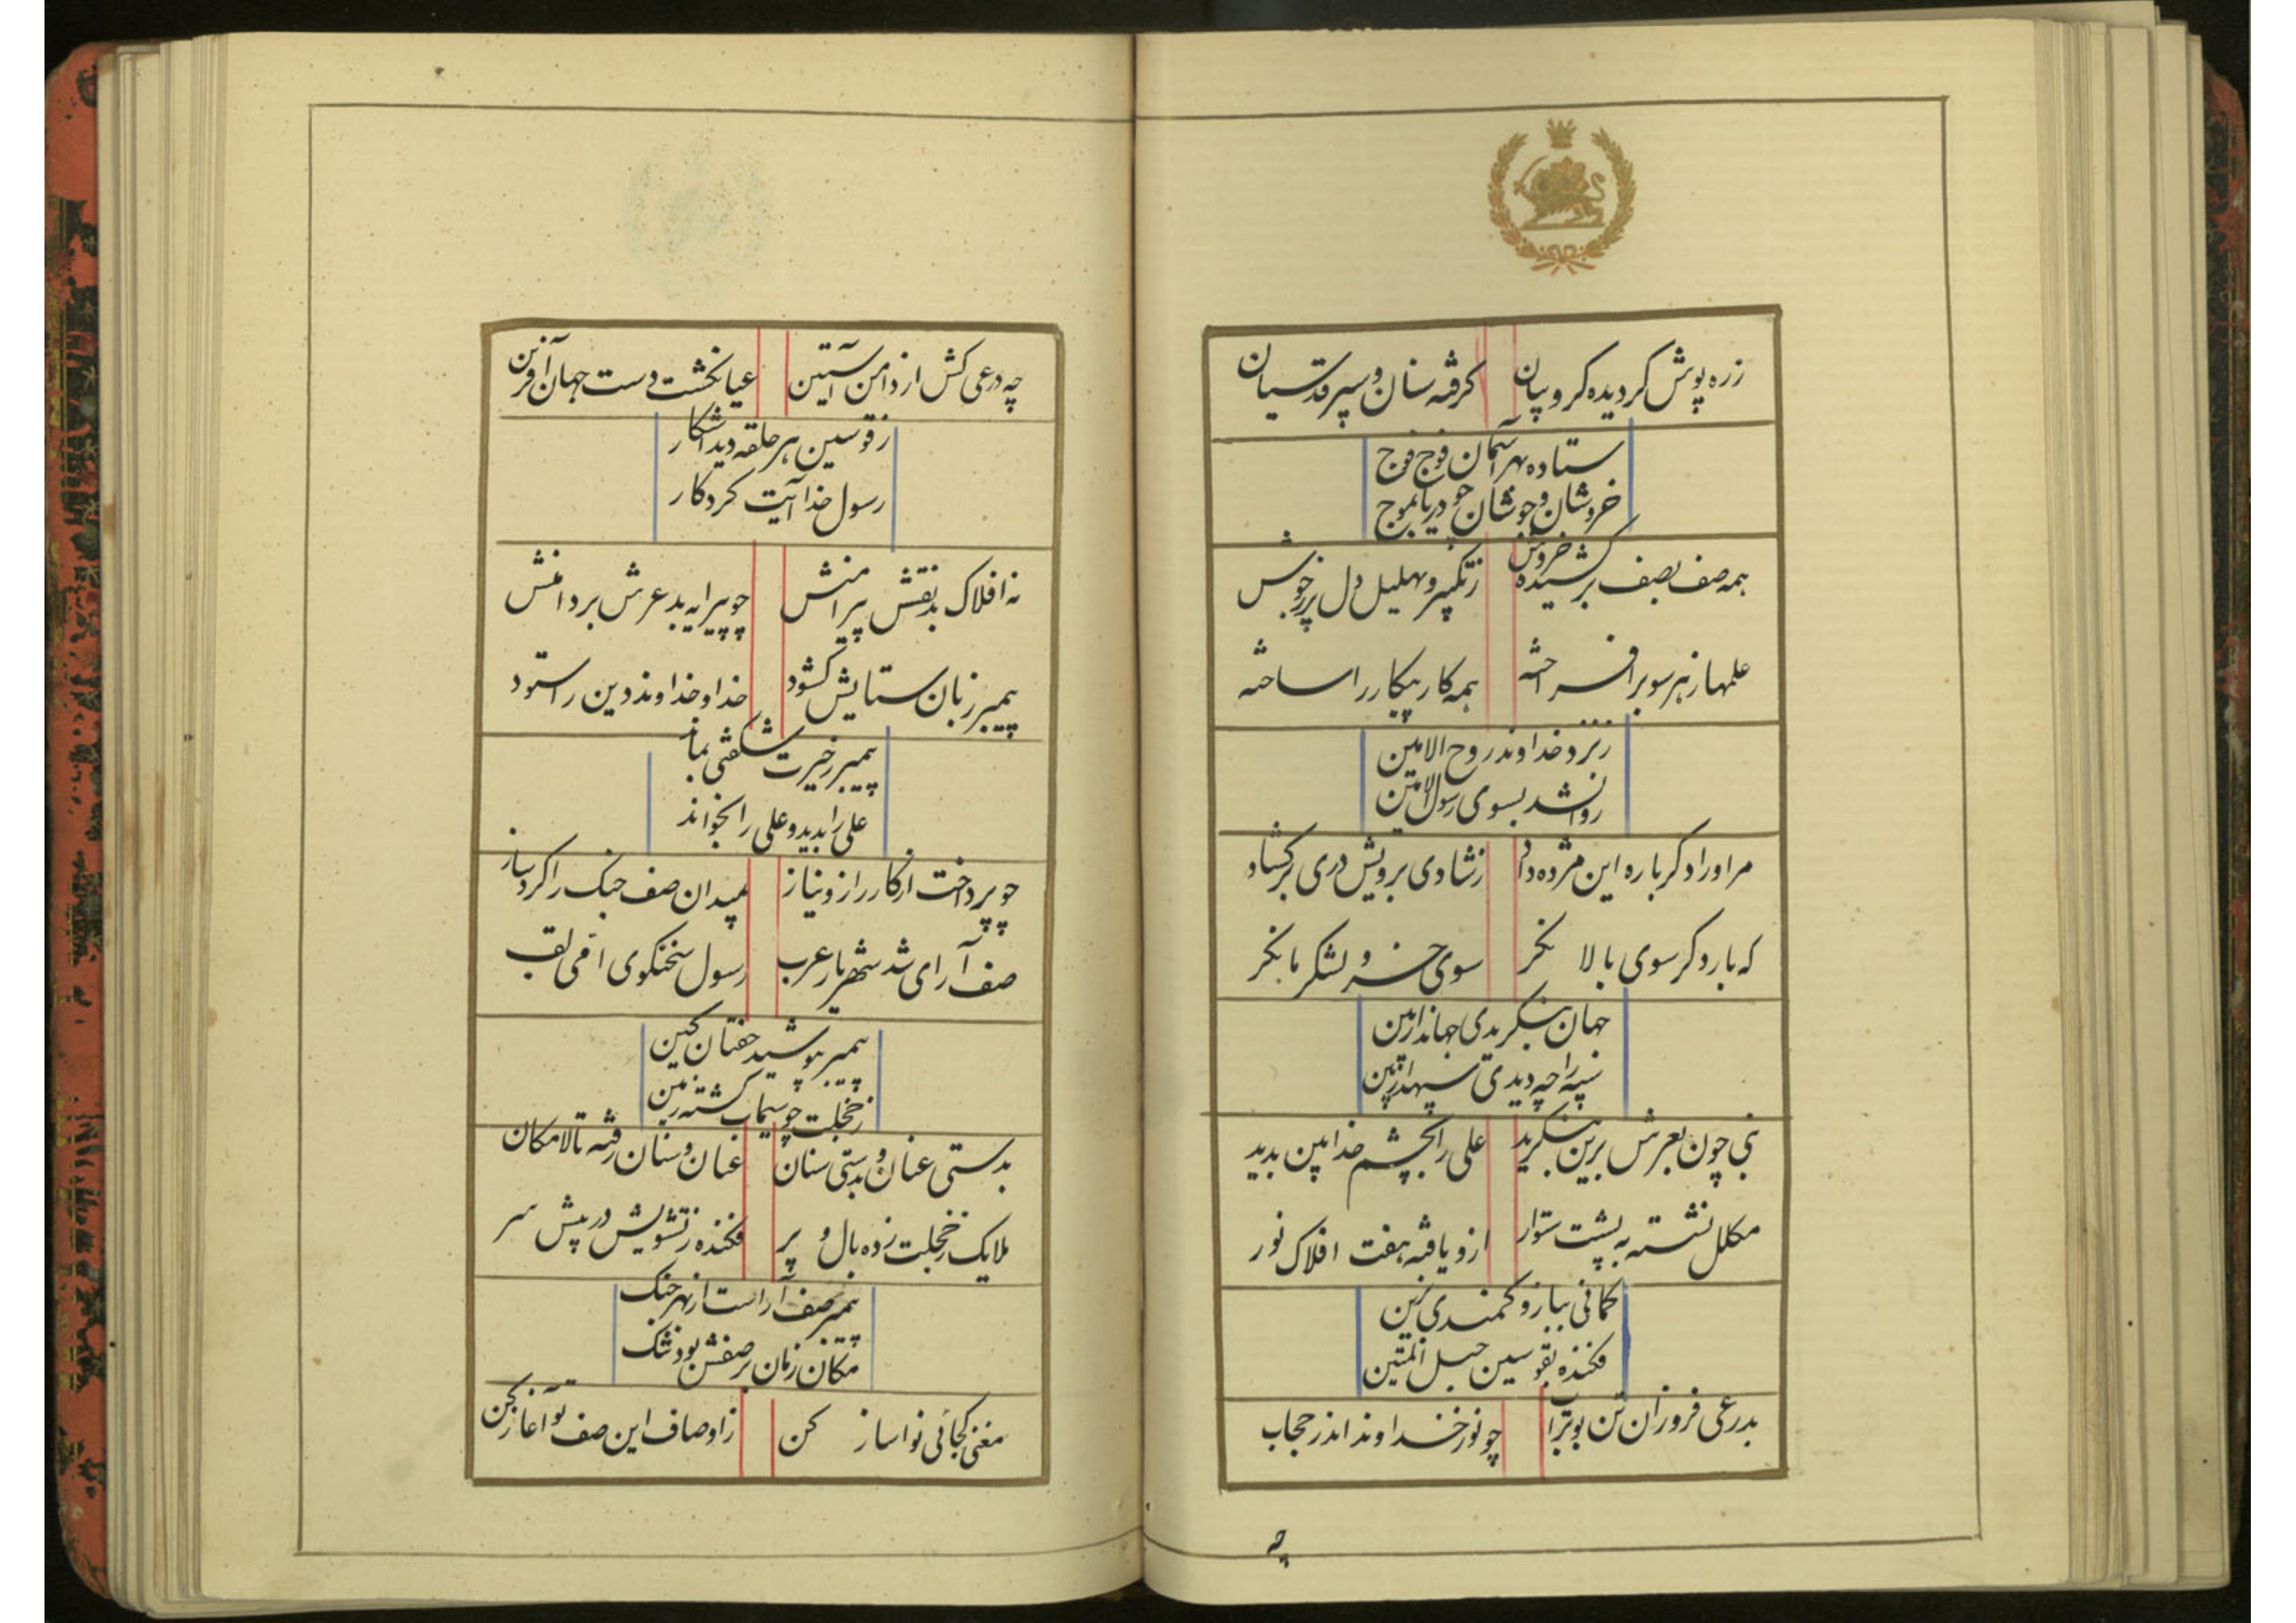 زره پوش کردیده کروبیان کرفته سنان و سپر قدسیان
ستاده بهر آسمان فوج فوج
خروشان و جوشان چو دریا بموج
همه صف بصف برکشیده خروش ز تکبیر و تهلیل دل پر ز جوش
علمها ز هر سو برافراخته همه کار پیکار را ساخته
ز نزد خداوند روح الامین
روانشد بسوی رسول امین
مر او را دکرباره این مژده داد ز شادی برویش دری برکشاد
که بار دکر سوی بالا نکر سوی خسرو لشکر ما نکر
جهان بنکریدی جهاندار بین
سپه را چه دیدی سپهدار بین
نبی چون بعرش برین بنکرید علی را بچشم خدا بین بدید
مکلل نشسته به پشت ستور ازو یافته هفت افلاک نور
کمانی ببازو کمندی بزین
فکنده بقوسین حبل المتین
بدرعی فروزان تن بوتراب چو نور خداوند اندر حجاب
چه
چه درعی کش از دامن آستین عیانکشت دست جهان آفرین
ز قوسین هر حلقه دید آشکار
رسول خدا آیت کردکار
نه افلاک بد نقش پیرامنش چو پیرایه بد عرش بر دامنش
پیمبر زبان ستایش کشود خدا و خداوند دین را ستود
پیمبر ز حیرت شکفتی بماند
علی را بدید و علی را بخواند
چو پرداخت از کار راز و نیاز بمیدان صف جنک را کرد ساز
صف آرای شد شهریار عرب رسول سخنکوی امی لقب
پیمبر بپوشید خفتان کین
ز خجلت چو سیماب کشته زمین
بدستی عنان و بدستی سنان عنان و سنان رفته تا لامکان
ملایک ز خجلت زده بال و پر فکنده ز تشویش در پیش سر
پیمبر صف آراست از بهر جنک
مکان زمان بر صفش بود تنک
مغنی کجائی نوا ساز کن ز اوصاف این صف تو آغاز کن